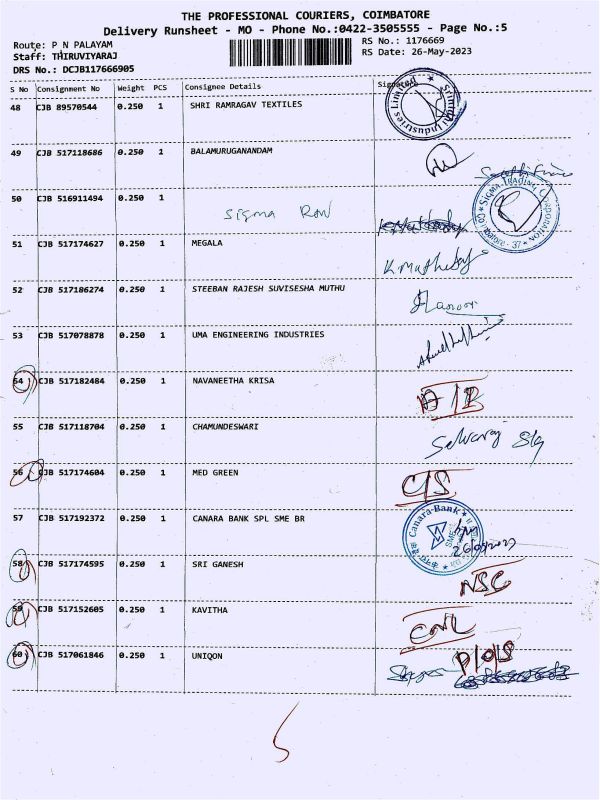 THE PROFESSIONAL COURIERS, COIMBATORE
Delivery Runsheet - MO - Phone No.:0422-3505555 - Page No.:5
Route: P N PALAYAM
RS No.: 1176669
Staff: THIRUVIYARAJ
RS Date: 26-May-2023
DRS No.: DCJB117666905
S No Consignment No Weight PCS Consignee Details Signature
48 CJB 89570544 0.250 1 SHRI RAMRAGAV TEXTILES
49 CJB 517118686 0.250 1 BALAMURUGANANDAM
50 CJB 516911494 0.250 1 Sigma Row
51 CJB 517174627 0.250 1 MEGALA
52 CJB 517186274 0.250 1 STEEBAN RAJESH SUVISESHA MUTHU
53 CJB 517078878 0.250 1 UMA ENGINEERING INDUSTRIES
54 CJB 517182484 0.250 1 NAVANEETHA KRISA
55 CJB 517118704 0.250 1 CHAMUNDESWARI Selvaraj
56 CJB 517174604 0.250 1 MED GREEN C/S
57 CJB 517192372 0.250 1 CANARA BANK SPL SME BR Canara Bank
58 CJB 517174595 0.250 1 SRI GANESH NSC
59 CJB 517152605 0.250 1 KAVITHA
60 CJB 517061846 0.250 1 UNIQON
5